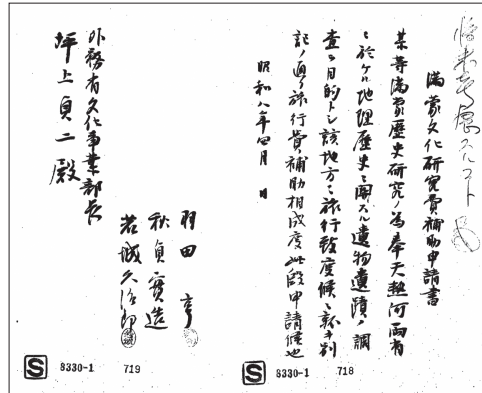 将来考慮スルコト
満蒙文化研究費補助申請書
某等満蒙歴史研究ノ為奉天熱河両省
ニ於ケル地理歴史ニ関スル遺物遺蹟ノ調
査ヲ目的トシ該地方ニ旅行致度候ニ就キ別
記ノ通リ旅行費補助相成度此段申請候也
昭和八年四月 日
羽田 亨
秋貞實造
若城久治郎
外務省文化事業部長
坪上貞二殿
S 8330-1 718
S 8330-1 719